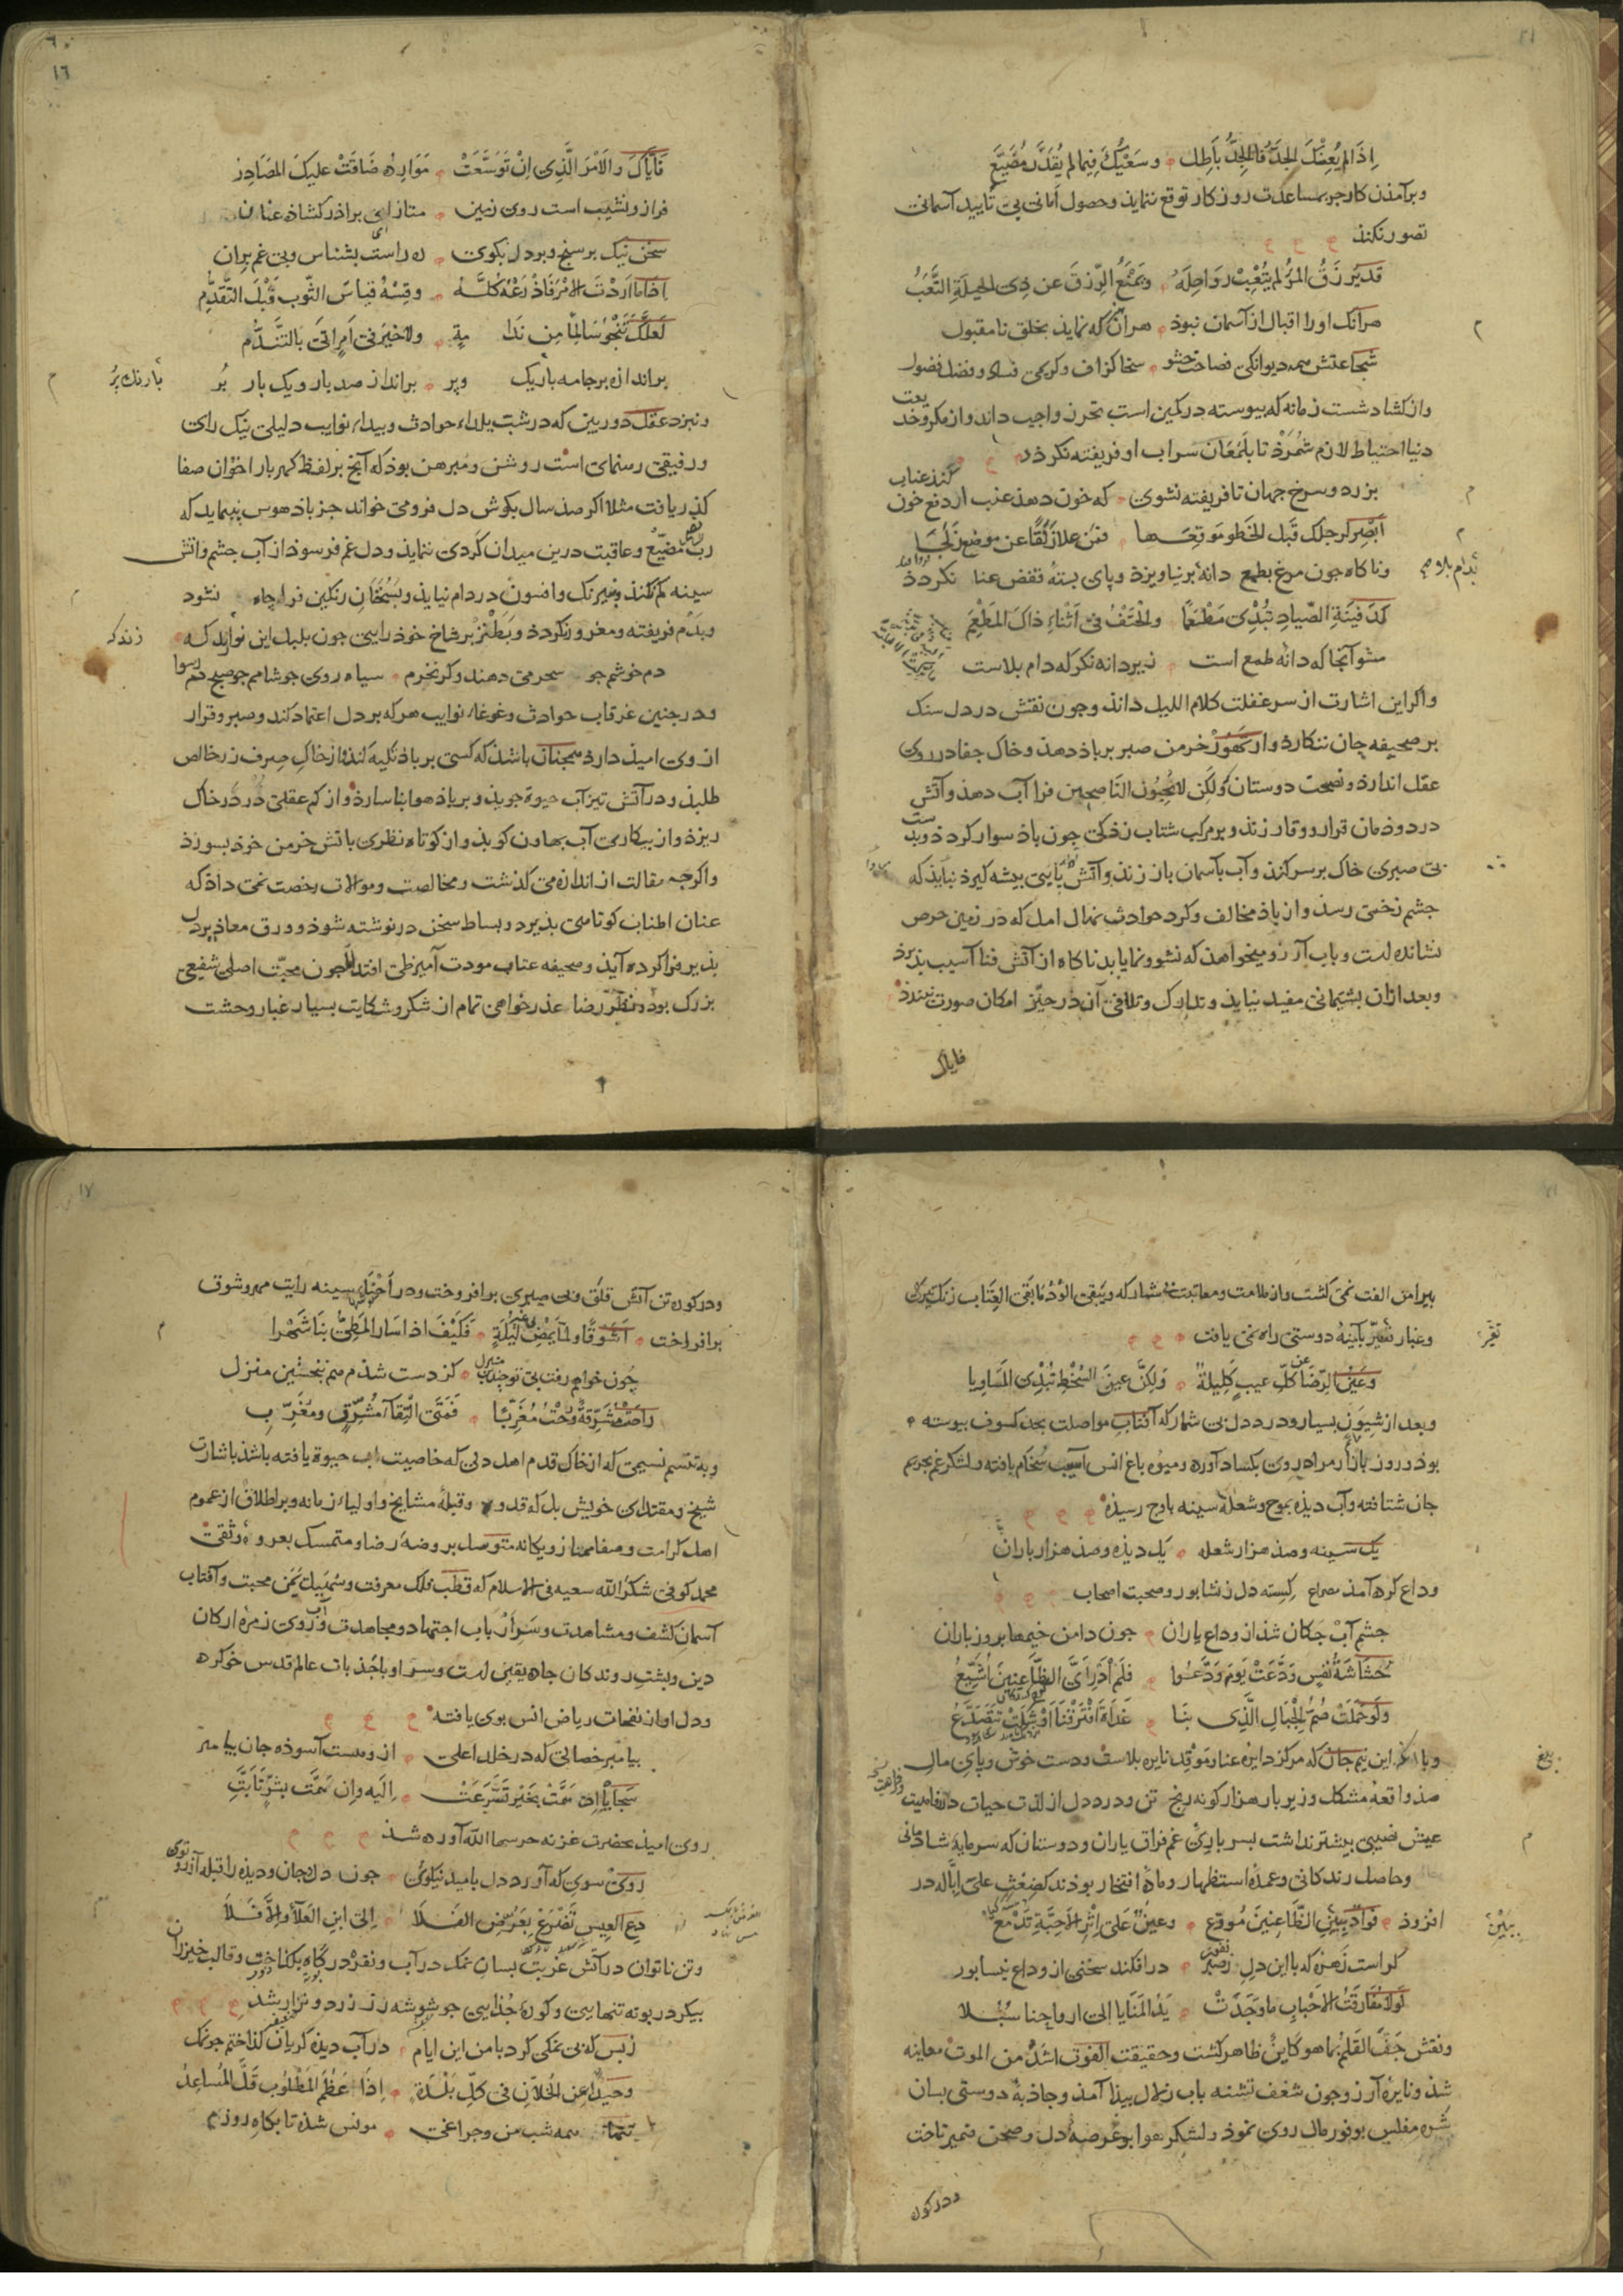 اِذَا لم يُعِنْكَ الجَدُّ فَالجِدُّ بَاطِل وسَعْيُكَ فِيمَا لم يُقَدَّر مُضَيَّع
وبرآمذن كار جز بمساعدت روزكار توقع ننمايذ وحصول امانى بى تأييد آسمانى
تصور نكنذ
قَد يُرزَقُ المَرءُ لم يتْعَبْ رَوَاحِلَهُ ويَمْنَعُ الرِّزقَ عن ذِى الحِيلَةِ التَّعَبُ
هرآنك او را اقبال از آسمان نبوذ هر آن كه نمايذ بخلق نامقبول
شجاعتش همه ديوانكى فصاحت حشو سخا كزاف وكريمى فساد وفضل فضول
واز كشاد شست زمانه كه پيوسته در كمين است تحرز واجب داند واز مكر وخد يعت
دنيا احتياط لازم شمرذ تا بلمعان سراب او فريفته نكردذ
بزرد وسرخ جهان تا فريفته نشوى كه خون دهذ عنب ار دفع خون كند عناب
اَبْصِر لرجلك قَبل الخَطو مَوقِعَها فمن علا زَلَقًا عن موضع زَلَجَا
وناكاه جون مرغ بطمع دانه برنياويزذ وپاى بسته قفص عنا نكردذ
كَدَفِينَةِ الصَّيادِ تُبْدِى مَطْمَعاً والحَتْفُ فى اَثْناءِ ذاكَ المَطْعَمِ
مشو آنجا كه دانه طمع است زير دانه نكر كه دام بلاست
واكر اين اشارت از سر غفلت كلام الليل داند وجون نقش در دل سنك
بر صحيفه جان ننكارذ واز تهور خرمن صبر بر باذ دهذ وخاك جفا در روى
عقل اندازذ ونصيحت دوستان ولكن لا تُحِبُّون النَّاصِحين فرا آب دهذ وآتش
در دوذمان قرار ووقار زنذ وبر مركب شتاب زذكى چون باذ سوار كردذ وبد ست
بى صبرى خاك بر سر كنذ وآب بآسمان باز زنذ وآتش پايى پيشه كيرذ نبايذ كه
جشم زخمى رسذ واز باذ مخالف وكرد حوادث نهال امل كه در زمين حرص
نشانده است وبآب آرزو ميخواهذ كه نشو ونما يابد ناكاه از آتش فنا آسيب پذيرذ
وبعد ازان پشيمانى مفيد نيايذ وتدارك وتلافى آن در حيّز امكان صورت نبندذ
فاياك
١٦
فَايَّاكَ والاَمْرَ الَّذِى اِنْ تَوَسَّعَتْ مَوَارِدُه ضَاقَتْ عليكَ المصَادِرُ
فراز ونشيب است روى زمين متاز اى براذر كشاذه عنان
سخن نيك برسنج وبر دل بكوى ره راست بشناس وبى غم بران
اِذَا ما اَرَدْتَ الامْرَ فَاذْرَعْهُ كُلَّهُ وقِسْهُ قياسَ الثَّوب قَبْلَ التَّقَدُّمِ
لَعلَّكَ تَنْجُو سَالِمًا مِن نَدَا مَةٍ ولا خيْرَ فى اَمرٍ اتى بالتَّنَدُّم
براندازه بر جامه باريك وبر برانداز صد بار ويك بار بُر
ونزد عقل دوربين كه در شب يلداء حوادث وبيداء نوايب دليلى نيك راى
ورفيقى رهنماى است روشن ومبرهن بوذ كه آنچ بر لفظ كهربار اخوان صفا
كذر يافت مثلا اكر صذ سال بكوش دل فرو مى خواند جز باذ هوس نپيمايد كه
ربّ مُضَيّع وعاقبت درين ميدان كردى ننمايذ ودل غم فرسوذ از آب جشم وآتش
سينه كم نكنذ وبنيرنك وافسون در دام نيايذ وبسُخَنَانِ رنكين فرا چاه نشود
وبدَم فريفته ومغرور نكردذ وبطنز بر شاخ خوذ رايى جون بلبل اين نوا زند كه
دم خوشم جو سحر مى دهند وكر نخرم سياه روى جو شامم جو صبح دم رسوا
ودر جنين غرقاب حوادث وغوغاء نوايب هر كه بر دل اعتماد كند وصبر وقرار
از وى اميذ دارذ همجنان باشذ كه كسى بر باذ تكيه كنذ واز خاك صِرف زر خالص
طلبذ ودر آتش تيز آب حيوة جويذ وبر باذ هوا بنا سازذ واز كم عقلى دُر در خاك
ريزذ واز بيكارى آب بهاون كوبذ واز كوتاه نظرى باتش خرمن خوذ بسوزذ
واكرجه مقالت از اندازه مى كذشت ومخالصت وموالات رخصت نمى داذ كه
عنان اطناب كوتاهى پذيرد وبساط سخن درنوشته شوذ وورق معاذير دل
پذير فرا كرده آيذ وصحيفه عتاب مودت آميز طى افتد اما جون محبّت اصلى شفيعى
بزرك بوذ ونظر رضا عذر خواهى تمام از شكر وشكايت بسيار غبار وحشت
پيرامن الفت نمى كشت واز ملامت ومعاتبت بى شمار كه ويَبْقَى الوُدُّ مَا بَقَى العِتَاب زنك تيركى
وغبار تغيّر بآينه دوستى راه نمى يافت
وعَيْنُ الرِّضَا عَن كلِّ عيبٍ كَلِيلَةٌ ولكِنَّ عينَ السُّخْطِ تُبْدِى المَسَاوِيا
وبعد از شيون بسيار ودرد دل بى شمار كه آفتاب مواصلت بحد كسوف پيوسته
بوذ وروز بازار مراد روى بكساد آورده وميوه باغ انس آسيب سُخام يافته ولشكر غم بحريم
جان شتافته وآب ديذه بموج وشعله سينه باوج رسيذه
يك سينه وصذ هزار شعله يك ديذه وصذ هزار باران
وداع كرده آمذ مصراع كسسته دل ز نشابور وصحبت اصحاب
جشم آبْ جكان شذ از وداع ياران جون دامن خيمها بروز باران
حُشَاشَةُ نَفْسٍ وَدَّعَتْ يَومَ وَدَّعُوا فلَم اَدْرِ اَىَّ الظَّاعِنينَ اُشَيِّعُ
وَلَو حُمِّلَتْ صُمُّ الجبَالِ الَّذِى بنَا غَدَاةَ افْتَرَقْنَا اَوْشَكَتْ تَتَصَدَّعُ
وبا آنك اين نيم جان كه مركز دايره عنا ومَوْقِد نايره بلاست ودست خوش وپاى مال
صذ واقعهٔ مشكل وزير بار هزار كونه رنج تن ودرد دل از لذت حيات ورفاهيت
عيش نصيبى بيشتر نداشت بسر بارئ غم فراق ياران ودوستان كه سرمايه شادمانى
وحاصل زندكانى وعمدهٔ استظهار ومادهٔ افتخار بوذند كضِغْثٍ على ابّاله در
افزوذ فؤاد ببَيْنِ الظَّاعِنينَ مُودّع وعينٌ على اِثْرِ الاَحِبَّةِ تَدْمَعُ
كراست زَهره كه با اين دلِ زصبر نفور درافكند سخنى از وداع نيسابور
لَولا مُفَارَقةُ الاحبابِ ما وَجَدَتْ يَدُ المَنَايا الى ارواحِنا سُبُلا
ونقش جَفَّ القَلَمُ بما هو كَاينٌ ظاهر كشت وحقيقت الفَوْت اشَدُّ من الموت معاينه
شذ ونايره آرزو جون شغف تشنه بآب زلال پيذا آمذ وجاذبهٔ دوستى بسان
شره مفلس بوفور مال روى نموذ ولشكر هوا بر عرصهٔ دل وصحن ضمير تاخت
ودر كوره
١٧
ودر كوره تن آتش قَلَق وبى صبرى برافروخت ودر اَحْنَاءِ سينه رايت مهر وشوق
برافراخت اَشَوقًا ولمّا يَمْضِ لى غير لَيْلَةٍ فكَيْفَ اذا سَارَ المَطِىُّ بنَا شَهْرا
جون خواهم رفت بى تو جندين منزل كز دست شذم هم نخستين منزل
راحت مُشَرِّقةً ورُحْتُ مُغَرِّبًا فَمَتَى الْتِقَاءُ مُشَرِّقٍ ومُغَرِّبِ
وبه تنسم نسيمى كه از خاك قدم اهل دلى كه خاصيت آب حيوة يافته باشذ باشارت
شيخ ومقتداى خويش بل كه قدوه وقبلهٔ مشايخ واولياء زمانه وبر اطلاق از عموم
اهل كرامت وصفا ممتاز ويكانه متوسل بروضهٔ رضا ومتمسك بعروهٔ وثقى
محمد كوفى شكرَ الله سعيه فى الاسلام كه قطب فلك معرفت وسُهَيل يَمَن محبت وآفتاب
آسمان كشف ومشاهدت وسَرِ ارباب اجتهاد ومجاهدت وآب روى زمره اركان
دين وپشت روندكان جاده يقين است وسرّ او با جَذبات عالم قدس خو كرده
ودل او از نفحات رياض انس بوى يافته
پيامبر خصالى كه در خلد اعلى از وهست آسوذه جان پيامبر
سَجَايَا اِن هَمَّتْ بخَيْرٍ تَسَرَّعَتْ اِلَيه وان هَمَّتْ بشرٍّ تَأَبَّتِ
روى اميذ بحضرت غزنه حرسها الله آورده شذ
روى سوى كه آورد دل باميد نيكوى جون دل وجان وديذه را قبله آرزو توى
دعِ العِيسِ تَضْرَعْ بعَرْضِ الفَلَا اِلى ابنِ العَلَآءِ واِلَّا فَلَا
وتن ناتوان در آتش غربت بسان نمك در آب ونقره در كاه بكداخت وقالب خيزران
پيكر در بوته تنهايى وكورهٔ جُذايى جو شوشه زر زرد ونزار شذ
زبس كه بى نمكى كرد با من اين ايام در آب ديذه كريان كذاختم جو نمك
وحيدٌ من الخُلّانِ فى كلِّ بَلْدَةٍ اِذَا عَظُمَ المَطْلُوب قَلَّ المُسَاعِدُ
تنها همه شب من وجراغى مونس شذه تا بكاه روزم